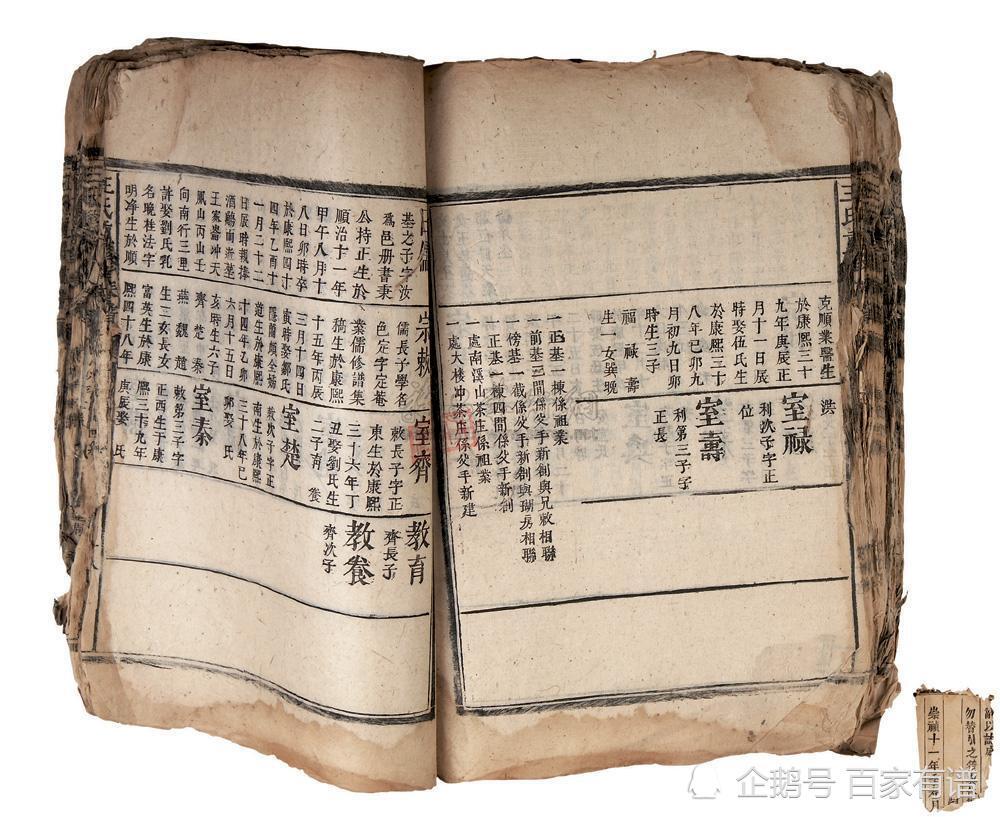 王氏
克順業醫生
於康熙三十
九年庚辰正
月十一日辰
時娶伍氏生
於康熙三十
八年己卯九
月初九日卯
時生三子
福 祿 壽
生一女巽晚
洪
室祿
利次子字正
位
室壽
利第三子字
正長
一正基一棟係祖業
一前基三間係父手新創與兄敕相聯
一傍基一截係父手新創與瑚房相聯
一正基一棟四間係父手新創
一處南溪山茶庄係祖業
一處大棧冲茶庄係父手新建
基之子字汝
為邑册書秉
公持正生於
順治十一年
甲午八月十
八日卯時卒
於康熙四十
四年乙酉十
一月二十二
日辰時
王家
鳳山丙山壬
向南行三里
許娶劉氏乳
名晚桂法字
明净生於順
崇敕
儒長子學名
色定字定菴
業儒修譜集
稿生於康熙
十五年丙辰
三月十四日
寅時娶鄒氏
道生於康熙
十四年乙卯
六月十五日
亥時生六子
齊 楚 秦
燕 魏 趙
生二女長女
富英生於康
熙四十八年
室齊
敕長子字正
東生於康熙
三十六年丁
丑娶劉氏生
二子育 養
室楚
敕次子字正
南生於康熙
三十八年己
卯娶 氏
室秦
敕第三子字
正西生于康
熙三十九年
庚辰娶 氏
教育
齊長子
教養
齊次子
王氏
勿替引之
崇禎十一年
企鹅号 百家有谱